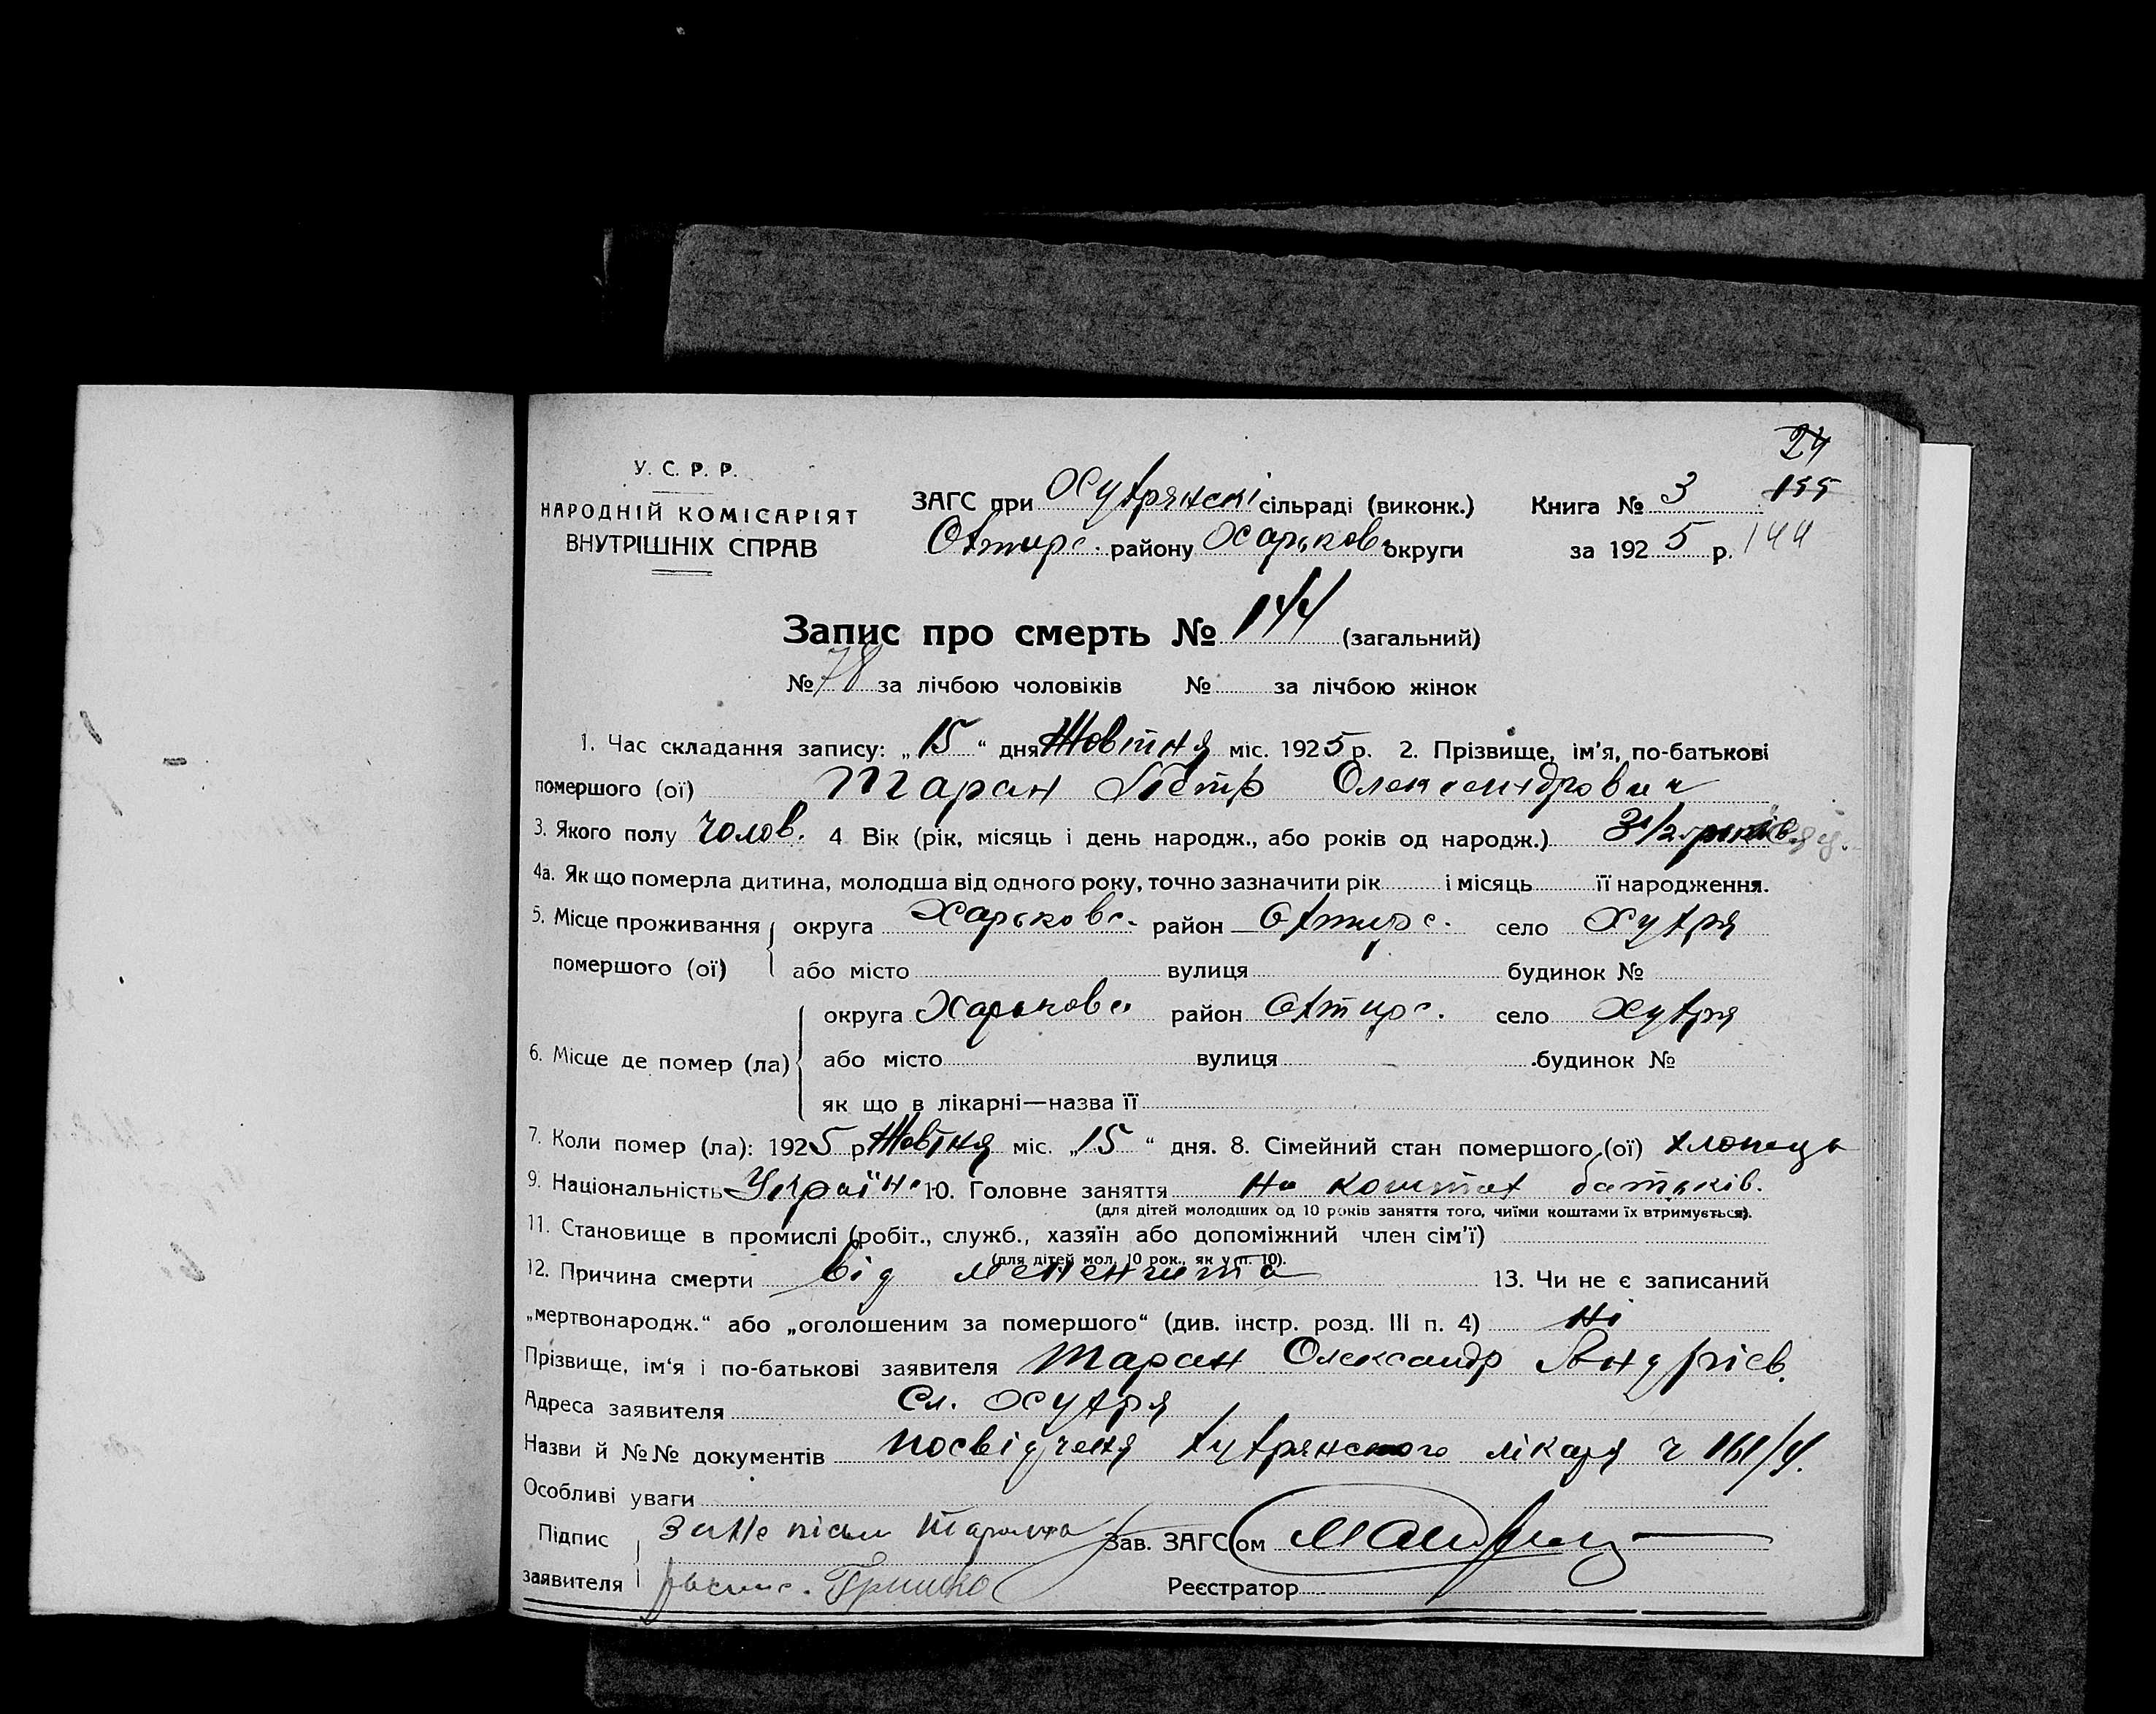 24
У. С. Р. Р.
НАРОДНІЙ КОМІСАРІЯТ
ВНУТРІШНІХ СПРАВ
ЗАГС при Охутрянскі сільраді (виконк.) Книга № 3 155
Охтирс. району Харьков. округи за 1925 р. 144
Запис про смерть № 144 (загальний)
№ 78 за лічбою чоловіків № за лічбою жінок
1. Час складання запису: „15“ дня Жовтня міс. 1925 р. 2. Прізвище, ім'я, по-батькові
помершого (ої) Таран Петр Олександрович
3. Якого полу чолов. 4 Вік (рік, місяць і день народж., або років од народж.) 3 1/2
4а. Як що померла дитина, молодша від одного року, точно зазначити рік і місяць її народження.
5. Місце проживання округа Харьковс. район Охтирс. село Хухря
помершого (ої) або місто вулиця будинок №
округа Харьковс район Охтирс. село Хухря
6. Місце де помер (ла) або місто вулиця будинок №
як що в лікарні—назва її
7. Коли помер (ла): 1925 р Жовтня міс. „15“ дня. 8. Сімейний стан помершого (ої) хлопець
9. Національність Україн. 10. Головне заняття на коштах батьків.
(для дітей молодших од 10 років заняття того, чиїми коштами їх втримується).
11. Становище в промислі (робіт., служб., хазяїн або допоміжний член сім'ї)
(для дітей мол. 10 рок., як у п. 10).
12. Причина смерти від мененгита 13. Чи не є записаний
„мертвонародж.“ або „оголошеним за помершого“ (див. інстр. розд. III п. 4) Ні
Прізвище, ім'я і по-батькові заявителя Таран Олександр Андрієв.
Адреса заявителя Сл. Хухря
Назви й №№ документів посвідченя хухрянского лікаря ч 161/
Особливі уваги
Підпис за не письм Тарана Зав. ЗАГС'ом
заявителя роспис. Гришко Реєстратор